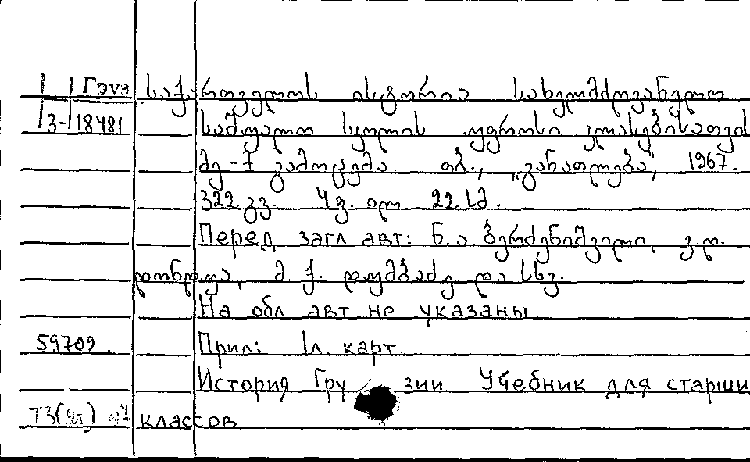 Гэуа საქართველოს ისტორია სახელმძღვანელო
3-18481 საშუალო სკოლის უფროსი კლასებისათვის
მე-7 გამოცემა თბ., „განათლება", 1967.
322 გვ. 4 ფ. ილ. 22 სმ.
Перед загл авт: ნ. ა ბერძენიშვილი, ვ. დ.
დონდუა, მ. ქ. დუმბაძე და სხვ.
На обл авт не указаны
59709 Прил: 1л. карт
История Грузии Учебник для старши
классов